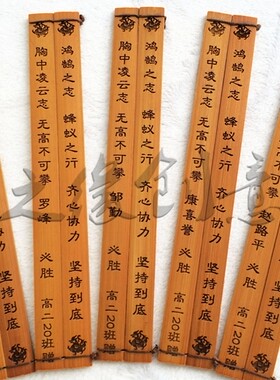 赵路平
鸿鹄之志 蜂蚁之行 齐心协力 坚持到底
胸中凌云志 无高不可攀 康喜誉 必胜 高二20班赠
鸿鹄之志 蜂蚁之行 齐心协力 坚持到底
胸中凌云志 无高不可攀 邹勤 必胜 高二20班赠
鸿鹄之志 蜂蚁之行 齐心协力 坚持到底
胸中凌云志 无高不可攀 罗峰 必胜 高二20班赠
之缘创意